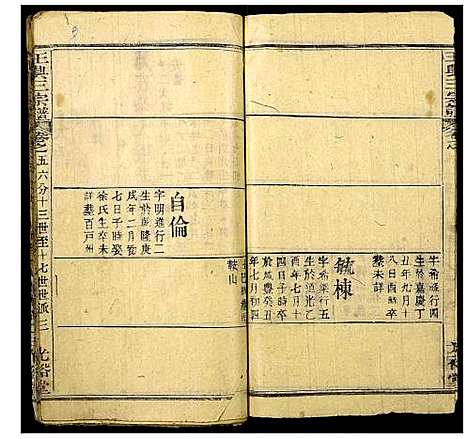 字希濂行四
生於嘉慶丁
丑年九月十
八日酉時卒
葬未詳
毓棟
字希榮行五
生於道光乙
酉年七月十
四日子時卒
於咸豐癸丑
年七月初四
鞍山
自倫
字明進行二
生於乾隆庚
戌年二月初
七日子時娶
徐氏生卒未
詳葬百戶州
王與三宗譜
卷之五六分十三世至十七世世派
三
光裕堂